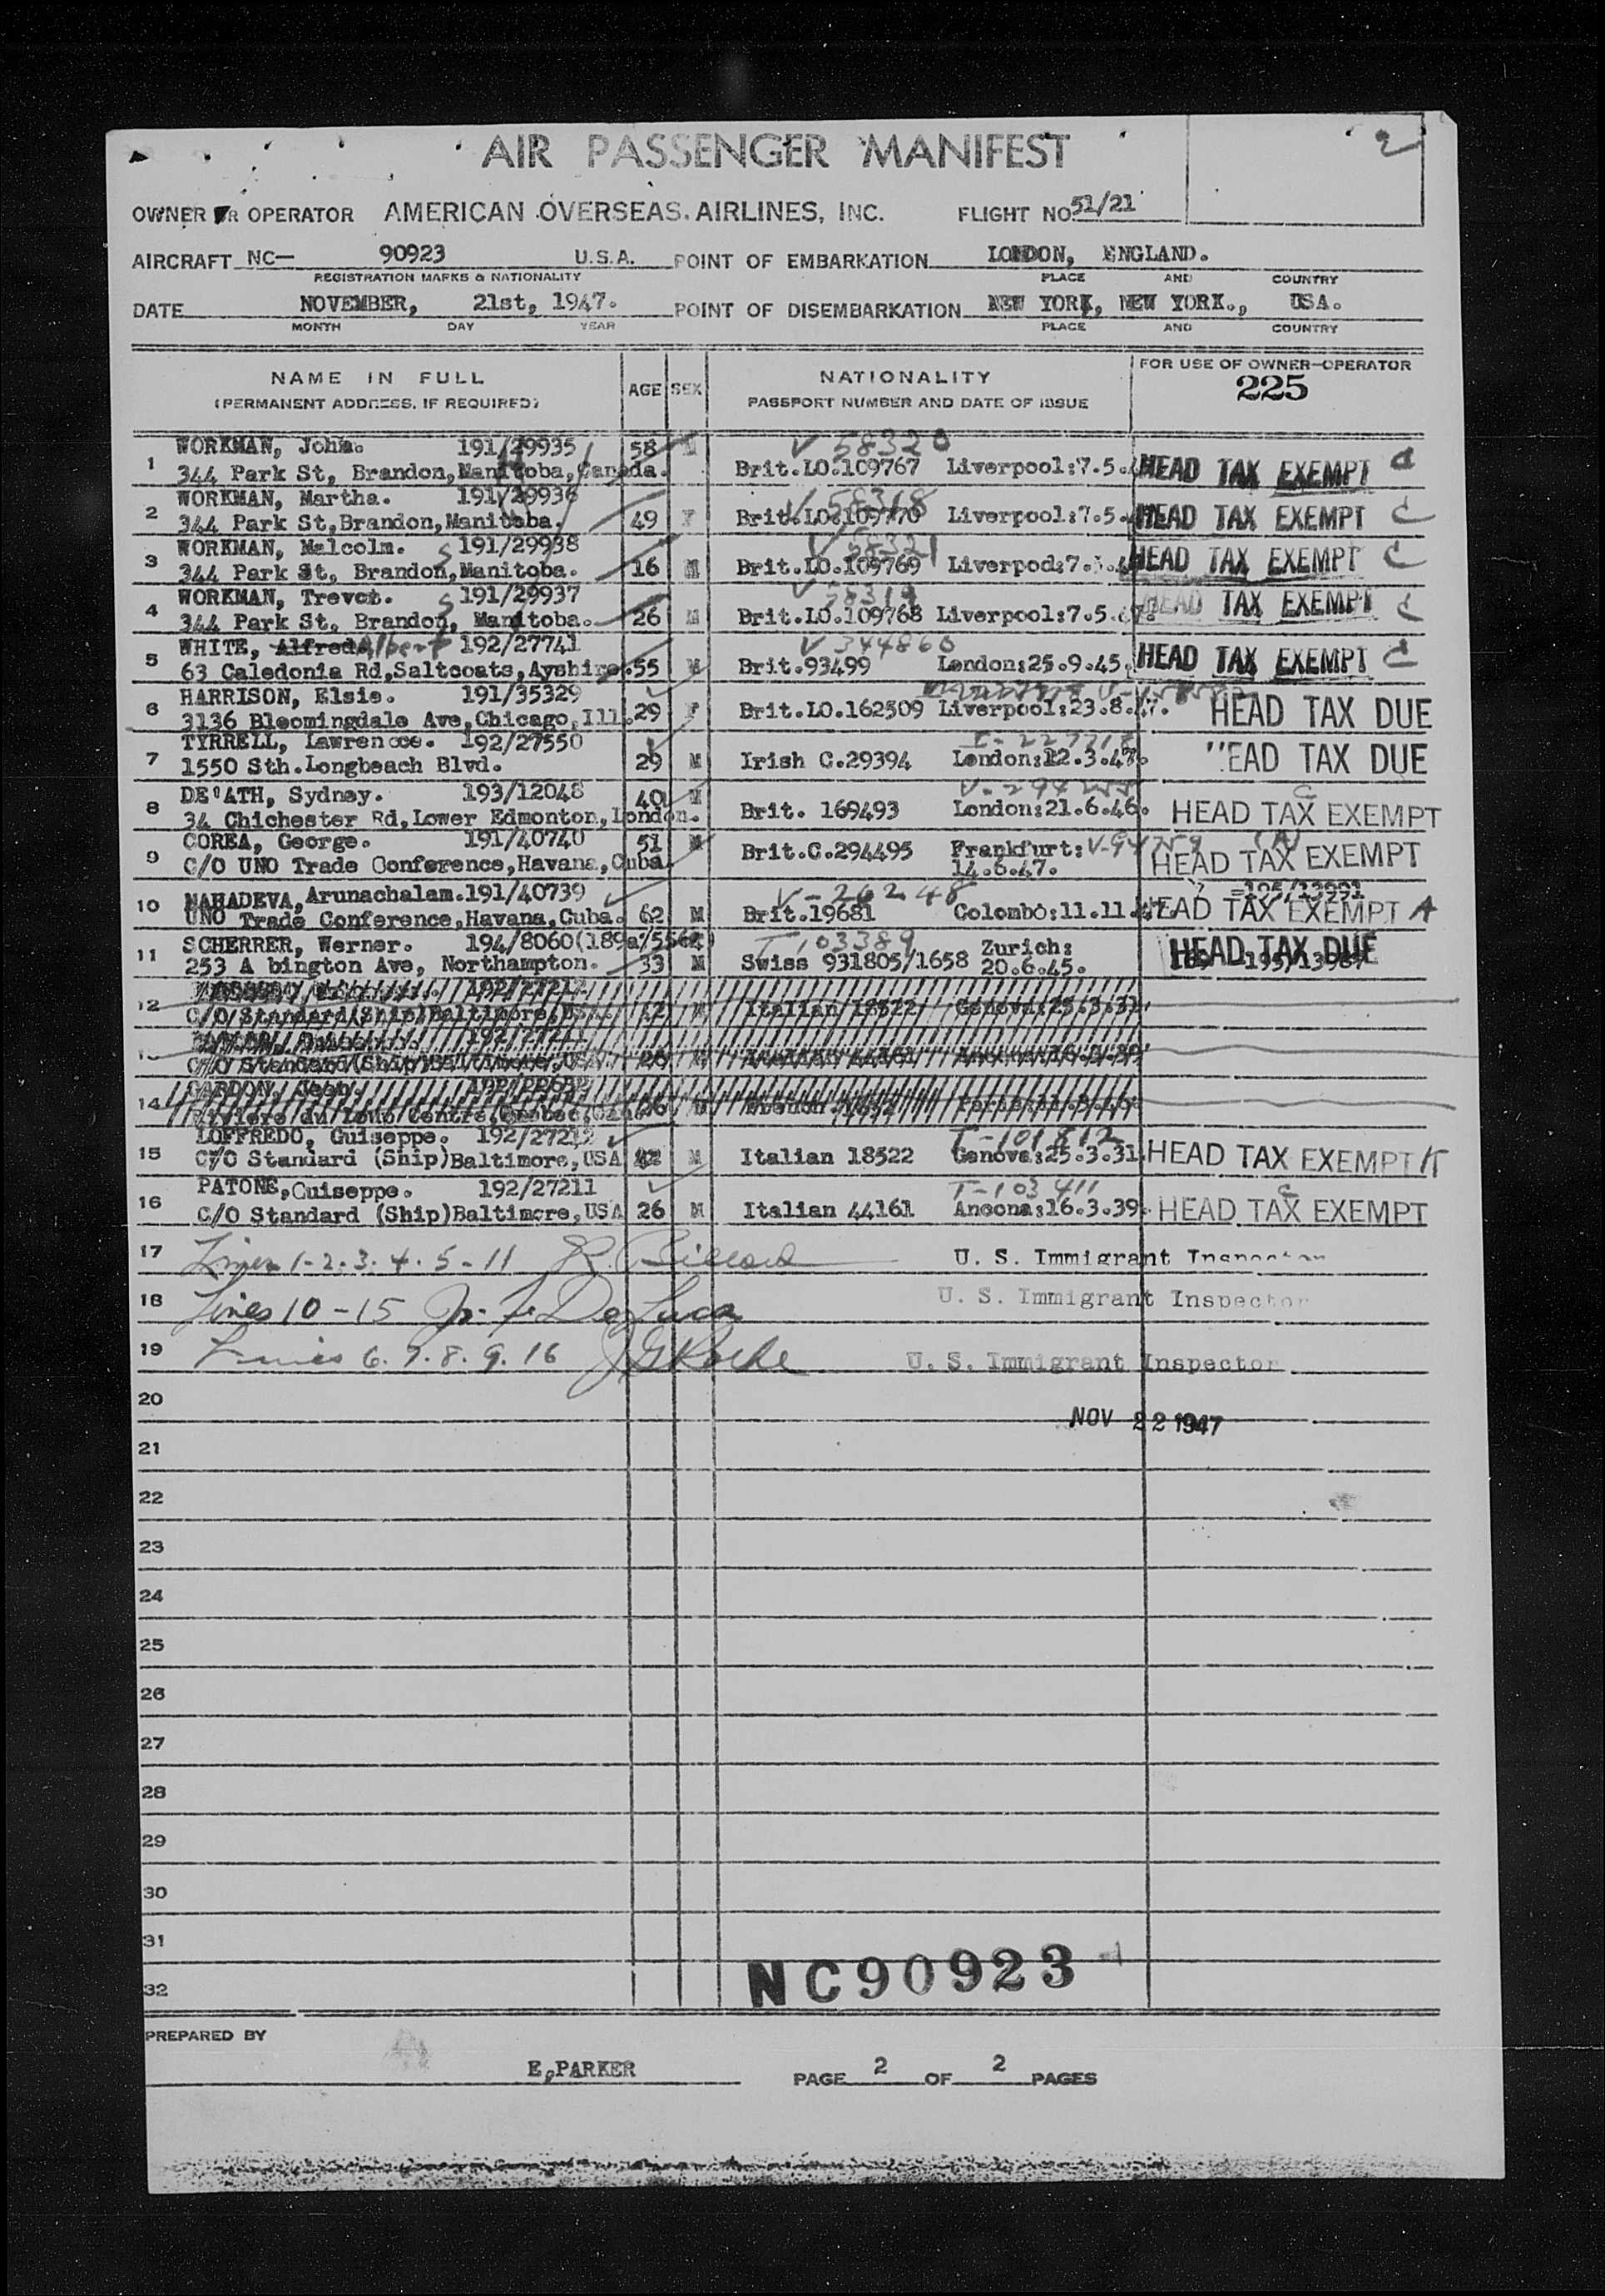 2
AIR PASSENGER MANIFEST
OWNER OR OPERATOR AMERICAN OVERSEAS AIRLINES, INC. FLIGHT NO 51/21
AIRCRAFT NC— 90923 U.S.A. POINT OF EMBARKATION LONDON, ENGLAND.
REGISTRATION MARKS & NATIONALITY PLACE AND COUNTRY
DATE NOVEMBER, 21st, 1947. POINT OF DISEMBARKATION NEW YORK, NEW YORK., USA.
MONTH DAY YEAR PLACE AND COUNTRY
NAME IN FULL AGE SEX NATIONALITY FOR USE OF OWNER-OPERATOR
(PERMANENT ADDRESS, IF REQUIRED) PASSPORT NUMBER AND DATE OF ISSUE 225
WORKMAN, John. 191/29935 58 M V 58320
1 344 Park St, Brandon, Manitoba, Canada. Brit.LO.109767 Liverpool:7.5. HEAD TAX EXEMPT C
WORKMAN, Martha. 191/29936 V 58318
2 344 Park St, Brandon, Manitoba. 49 F Brit.LO.109770 Liverpool:7.5. HEAD TAX EXEMPT C
WORKMAN, Malcolm. S 191/29938 V 58321
3 344 Park St, Brandon, Manitoba. 16 M Brit.LO.109769 Liverpool:7. HEAD TAX EXEMPT C
WORKMAN, Trevot. S 191/29937 V 58319
4 344 Park St, Brandon, Manitoba. 26 M Brit.LO.109768 Liverpool:7.5.47. HEAD TAX EXEMPT C
WHITE, Alfred Albert 192/27741 V 344860
5 63 Caledonia Rd, Saltcoats, Ayshire. 55 M Brit.93499 London:25.9.45. HEAD TAX EXEMPT C
HARRISON, Elsie. 191/35329
6 3136 Bloomingdale Ave, Chicago, Ill. 29 F Brit.LO.162509 Liverpool:23.8.47. HEAD TAX DUE
TYRRELL, Lawrencce. 192/27550
7 1550 Sth.Longbeach Blvd. 29 M Irish C.29394 London:12.3.47. HEAD TAX DUE
DE'ATH, Sydney. 193/12048 40 M V-294255 C
8 34 Chichester Rd, Lower Edmonton, London. Brit. 169493 London:21.6.46. HEAD TAX EXEMPT
COREA, George. 191/40740 51 M Brit.C.294495 Frankfurt: V-94759 (A)
9 C/O UNO Trade Conference, Havana, Cuba. 14.6.47. HEAD TAX EXEMPT
MAHADEVA, Arunachalam. 191/40739 V-26248 =195/13991
10 UNO Trade Conference, Havana, Cuba. 62 M Brit.19681 Colombo:11.11.47. HEAD TAX EXEMPT A
SCHERRER, Werner. 194/8060(189a/5562) T 103389 Zurich: HEAD TAX DUE
11 253 A bington Ave, Northampton. 33 M Swiss 931805/1658 20.6.45.
192/27212
12 C/O Standard (Ship) Baltimore, USA. 42 M Italian 18522 Genova:25.3.31.
192/27211
C/O Standard (Ship) Baltimore, USA. 26 M Italian 44161 Ancona:16.3.39.
Jean.
14 Riviere du Loup Centre, Quebec, 26 M French
LOFFREDO, Guiseppe. 192/27212 T-101812
15 C/O Standard (Ship) Baltimore, USA 42 M Italian 18522 Genova:25.3.31. HEAD TAX EXEMPT K
PATONE, Guiseppe. 192/27211 T-103411 C
16 C/O Standard (Ship) Baltimore, USA 26 M Italian 44161 Ancona:16.3.39. HEAD TAX EXEMPT
17 Lines 1-2.3.4.5-11 U. S. Immigrant Inspector
18 Lines 10-15 De Luca U. S. Immigrant Inspector
19 Lines 6.7.8.9.16 U. S. Immigrant Inspector
20
NOV 22 1947
21
22
23
24
25
26
27
28
29
30
31
NC90923
32
PREPARED BY
E. PARKER PAGE 2 OF 2 PAGES